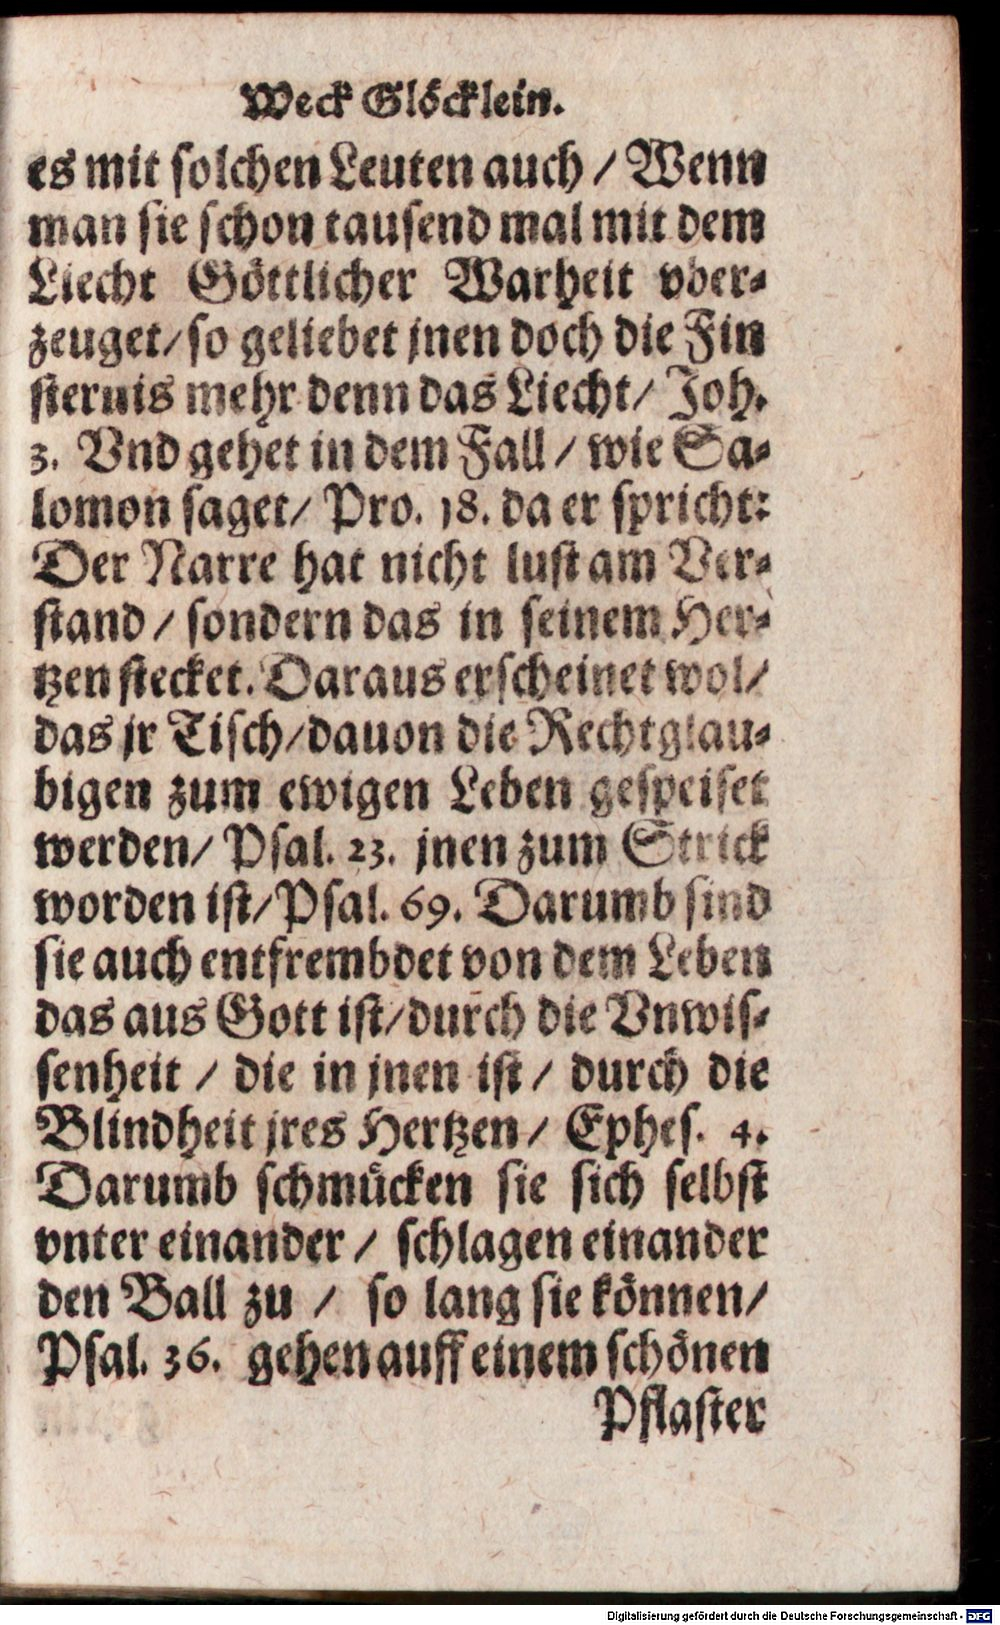 Weck Glöcklein.
es mit solchen Leuten auch / Wenn
man sie schon tausend mal mit dem
Liecht Göttlicher Warheit vber-
zeuget/ so geliebet jnen doch die Fin
sternis mehr denn das Liecht/ Joh.
3. Vnd gehet in dem Fall / wie Sa-
lomon saget/ Pro. 18. da er spricht:
Der Narre hat nicht lust am Ver-
stand / sondern das in seinem Her-
tzen stecket. Daraus erscheinet wol/
das jr Tisch/ dauon die Rechtglau-
bigen zum ewigen Leben gespeiset
werden/ Psal. 23. jnen zum Strick
worden ist/ Psal. 69. Darumb sind
sie auch entfrembdet von dem Leben
das aus Gott ist/ durch die Vnwis-
senheit / die in jnen ist / durch die
Blindheit jres Hertzen / Ephes. 4.
Darumb schmücken sie sich selbst
vnter einander / schlagen einander
den Ball zu / so lang sie können/
Psal. 36. gehen auff einem schönen
Pflaster
Digitalisierung gefördert durch die Deutsche Forschungsgemeinschaft - DFG